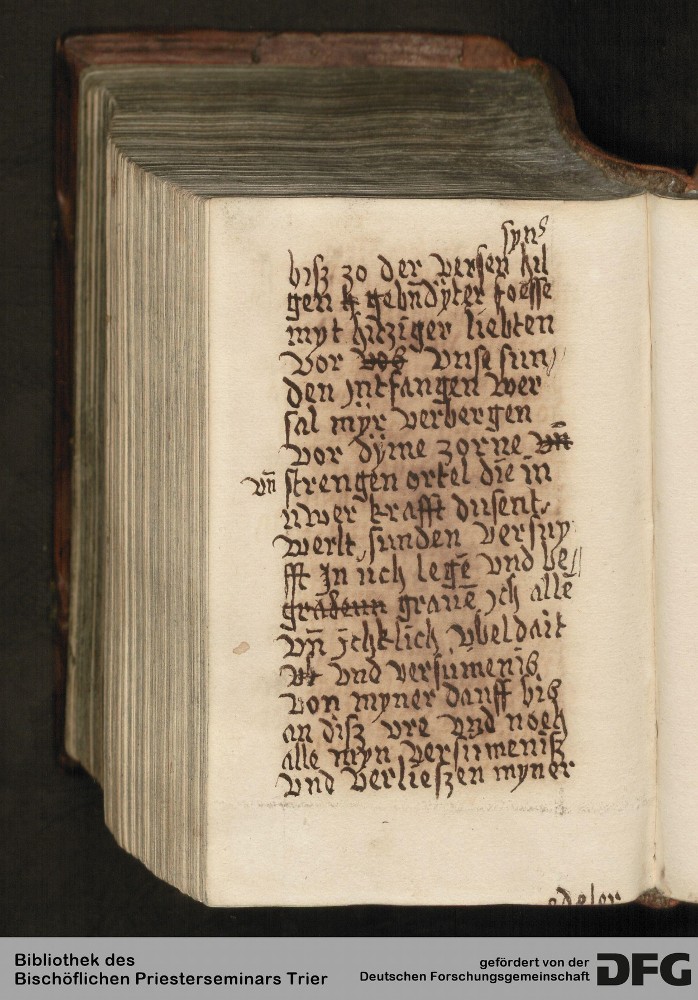 syns
bisz zo der versen hil
gen gebūdyter foesse
myt hitziger liebten
vor vnse sun
den jntfangen wer
sal myr verbergen
vor dyme zorne vn̄
vn̄ strengen ortel die in
uwer krafft dusent
werlt sunden versuy
fft In uch legē vnd be
grabenn grauē ich allē
vn̄ ichklich vbeldait
vnd versumenis
von myner dauff bis
an disz vre vnd noch
alle myn versumenisz
vnd verlieszen myner
edeler
Bibliothek des
Bischöflichen Priesterseminars Trier
gefördert von der
Deutschen Forschungsgemeinschaft DFG